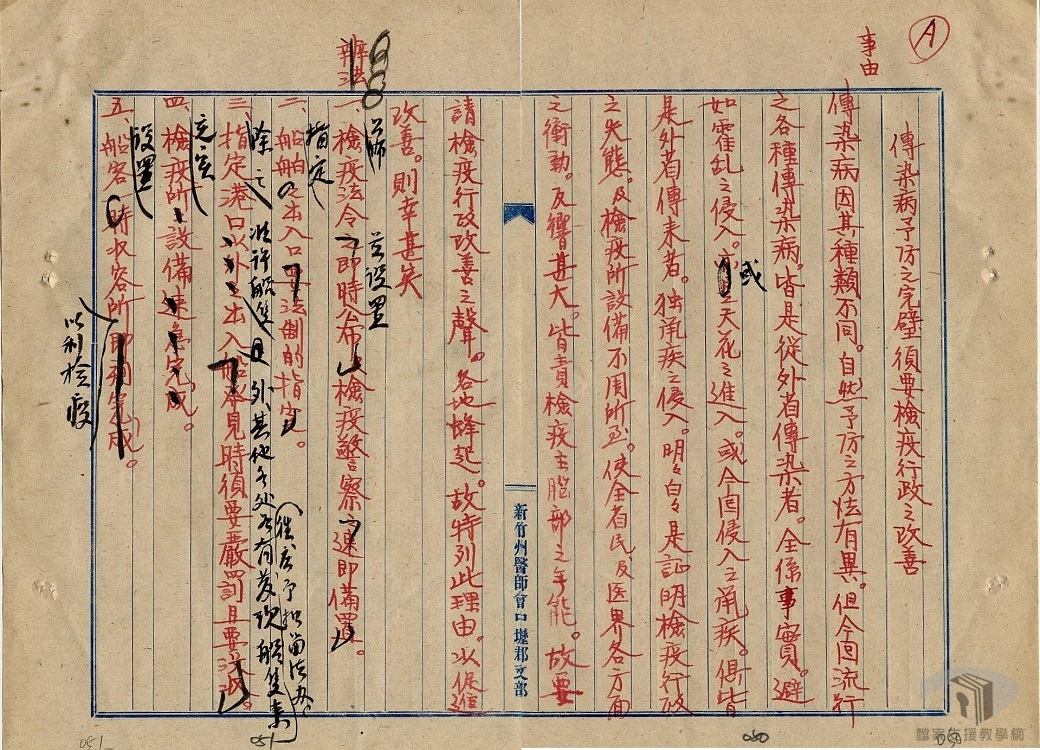 A
事由
傳染病予防之完壁須要檢疫行政之改善
傳染病因其種類不同。自然予防之方法有異。但今回流行
之各種傳染病。皆是從外者傳染者。全係事實。避
如霍乱之侵入。或天花之進入。或今回侵入之鼠疾。俱皆
是外者傳来者。独鼠疾之侵入。明々白々是証明檢疫行政
之失態。及檢疫所設備不周所至。使全省民及医界各方面
之衝動。反響甚大。皆責檢疫主腦部之無能。故要
請檢疫行政改善之聲。各地蜂起。故特列此理由。以促進
改善。則幸甚矣
辦法
一、檢疫法令即時公布檢疫警察速即備置。
並設置
二、船舶之出入口要法制的指定。
指定
除 准許船隻 外其他各处若有發現船隻来
往應予扣留法办。
三、指定港口以外之出入船舶發見時須要嚴罰且要沒收。
四、檢疫所設備速急完成。
設置
五、船客臨時收容所即刻完成。
以利檢疫
新竹州醫師會中壢郡支部
050
050
051
051
檔案支援教學網